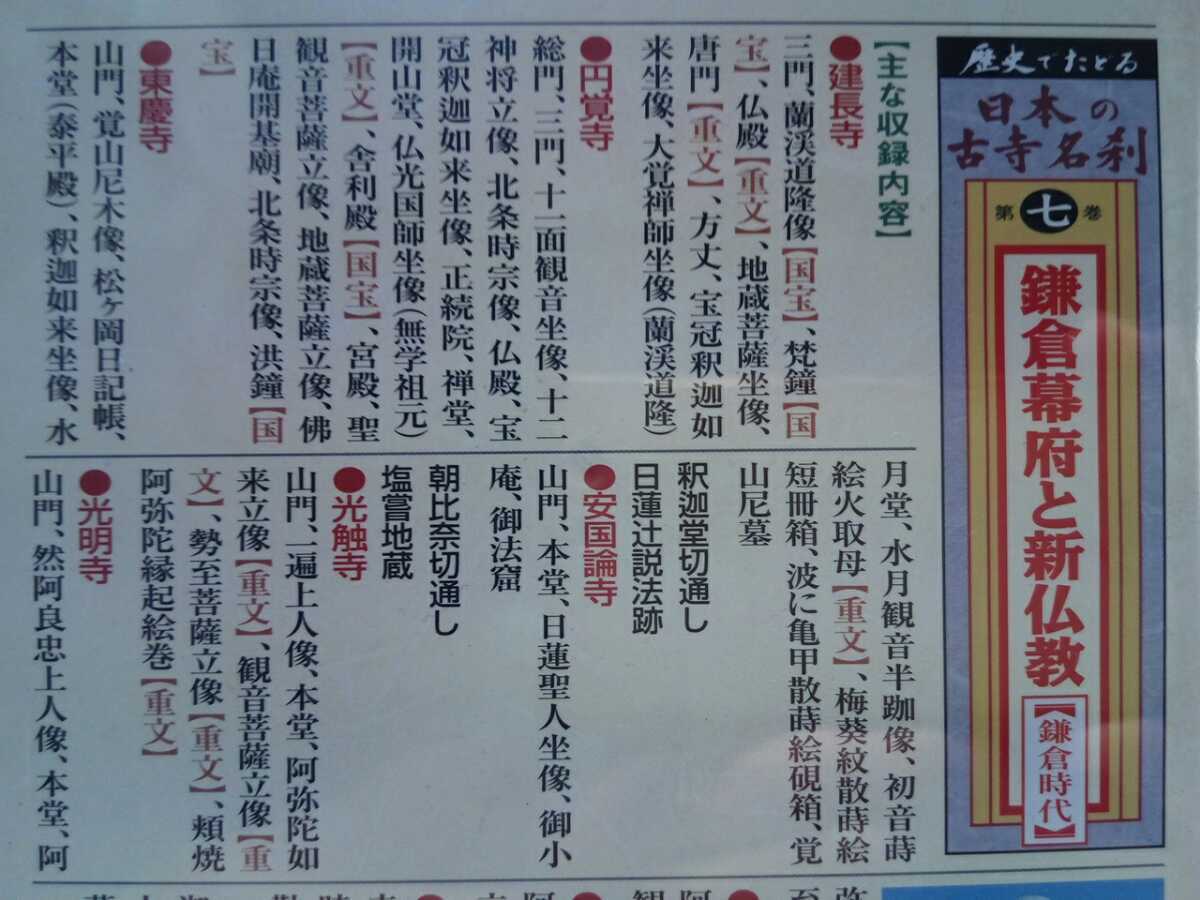 歴史でたどる
日本の
古寺名刹
第七巻
鎌倉幕府と新仏教
【鎌倉時代】
【主な収録内容】
●建長寺
三門、蘭渓道隆像【国宝】、梵鐘【国
宝】、仏殿【重文】、地蔵菩薩坐像、
唐門【重文】、方丈、宝冠釈迦如
来坐像、大覚禅師坐像（蘭渓道隆）
●円覚寺
総門、三門、十一面観音坐像、十二
神将立像、北条時宗像、仏殿、宝
冠釈迦如来坐像、正続院、禅堂、
開山堂、仏光国師坐像（無学祖元）
【重文】、舎利殿【国宝】、宮殿、聖
観音菩薩立像、地蔵菩薩立像、佛
日庵開基廟、北条時宗像、洪鐘【国
宝】
●東慶寺
山門、覚山尼木像、松ヶ岡日記帳、
本堂（泰平殿）、釈迦如来坐像、水
月堂、水月観音半跏像、初音蒔
絵火取母【重文】、梅葵紋散蒔絵
短冊箱、波に亀甲散蒔絵硯箱、覚
山尼墓
釈迦堂切通し
日蓮辻説法跡
●安国論寺
山門、本堂、日蓮聖人坐像、御小
庵、御法窟
朝比奈切通し
塩嘗地蔵
●光触寺
山門、一遍上人像、本堂、阿弥陀如
来立像【重文】、観音菩薩立像【重
文】、勢至菩薩立像【重文】、頬焼
阿弥陀縁起絵巻【重文】
●光明寺
山門、然阿良忠上人像、本堂、阿